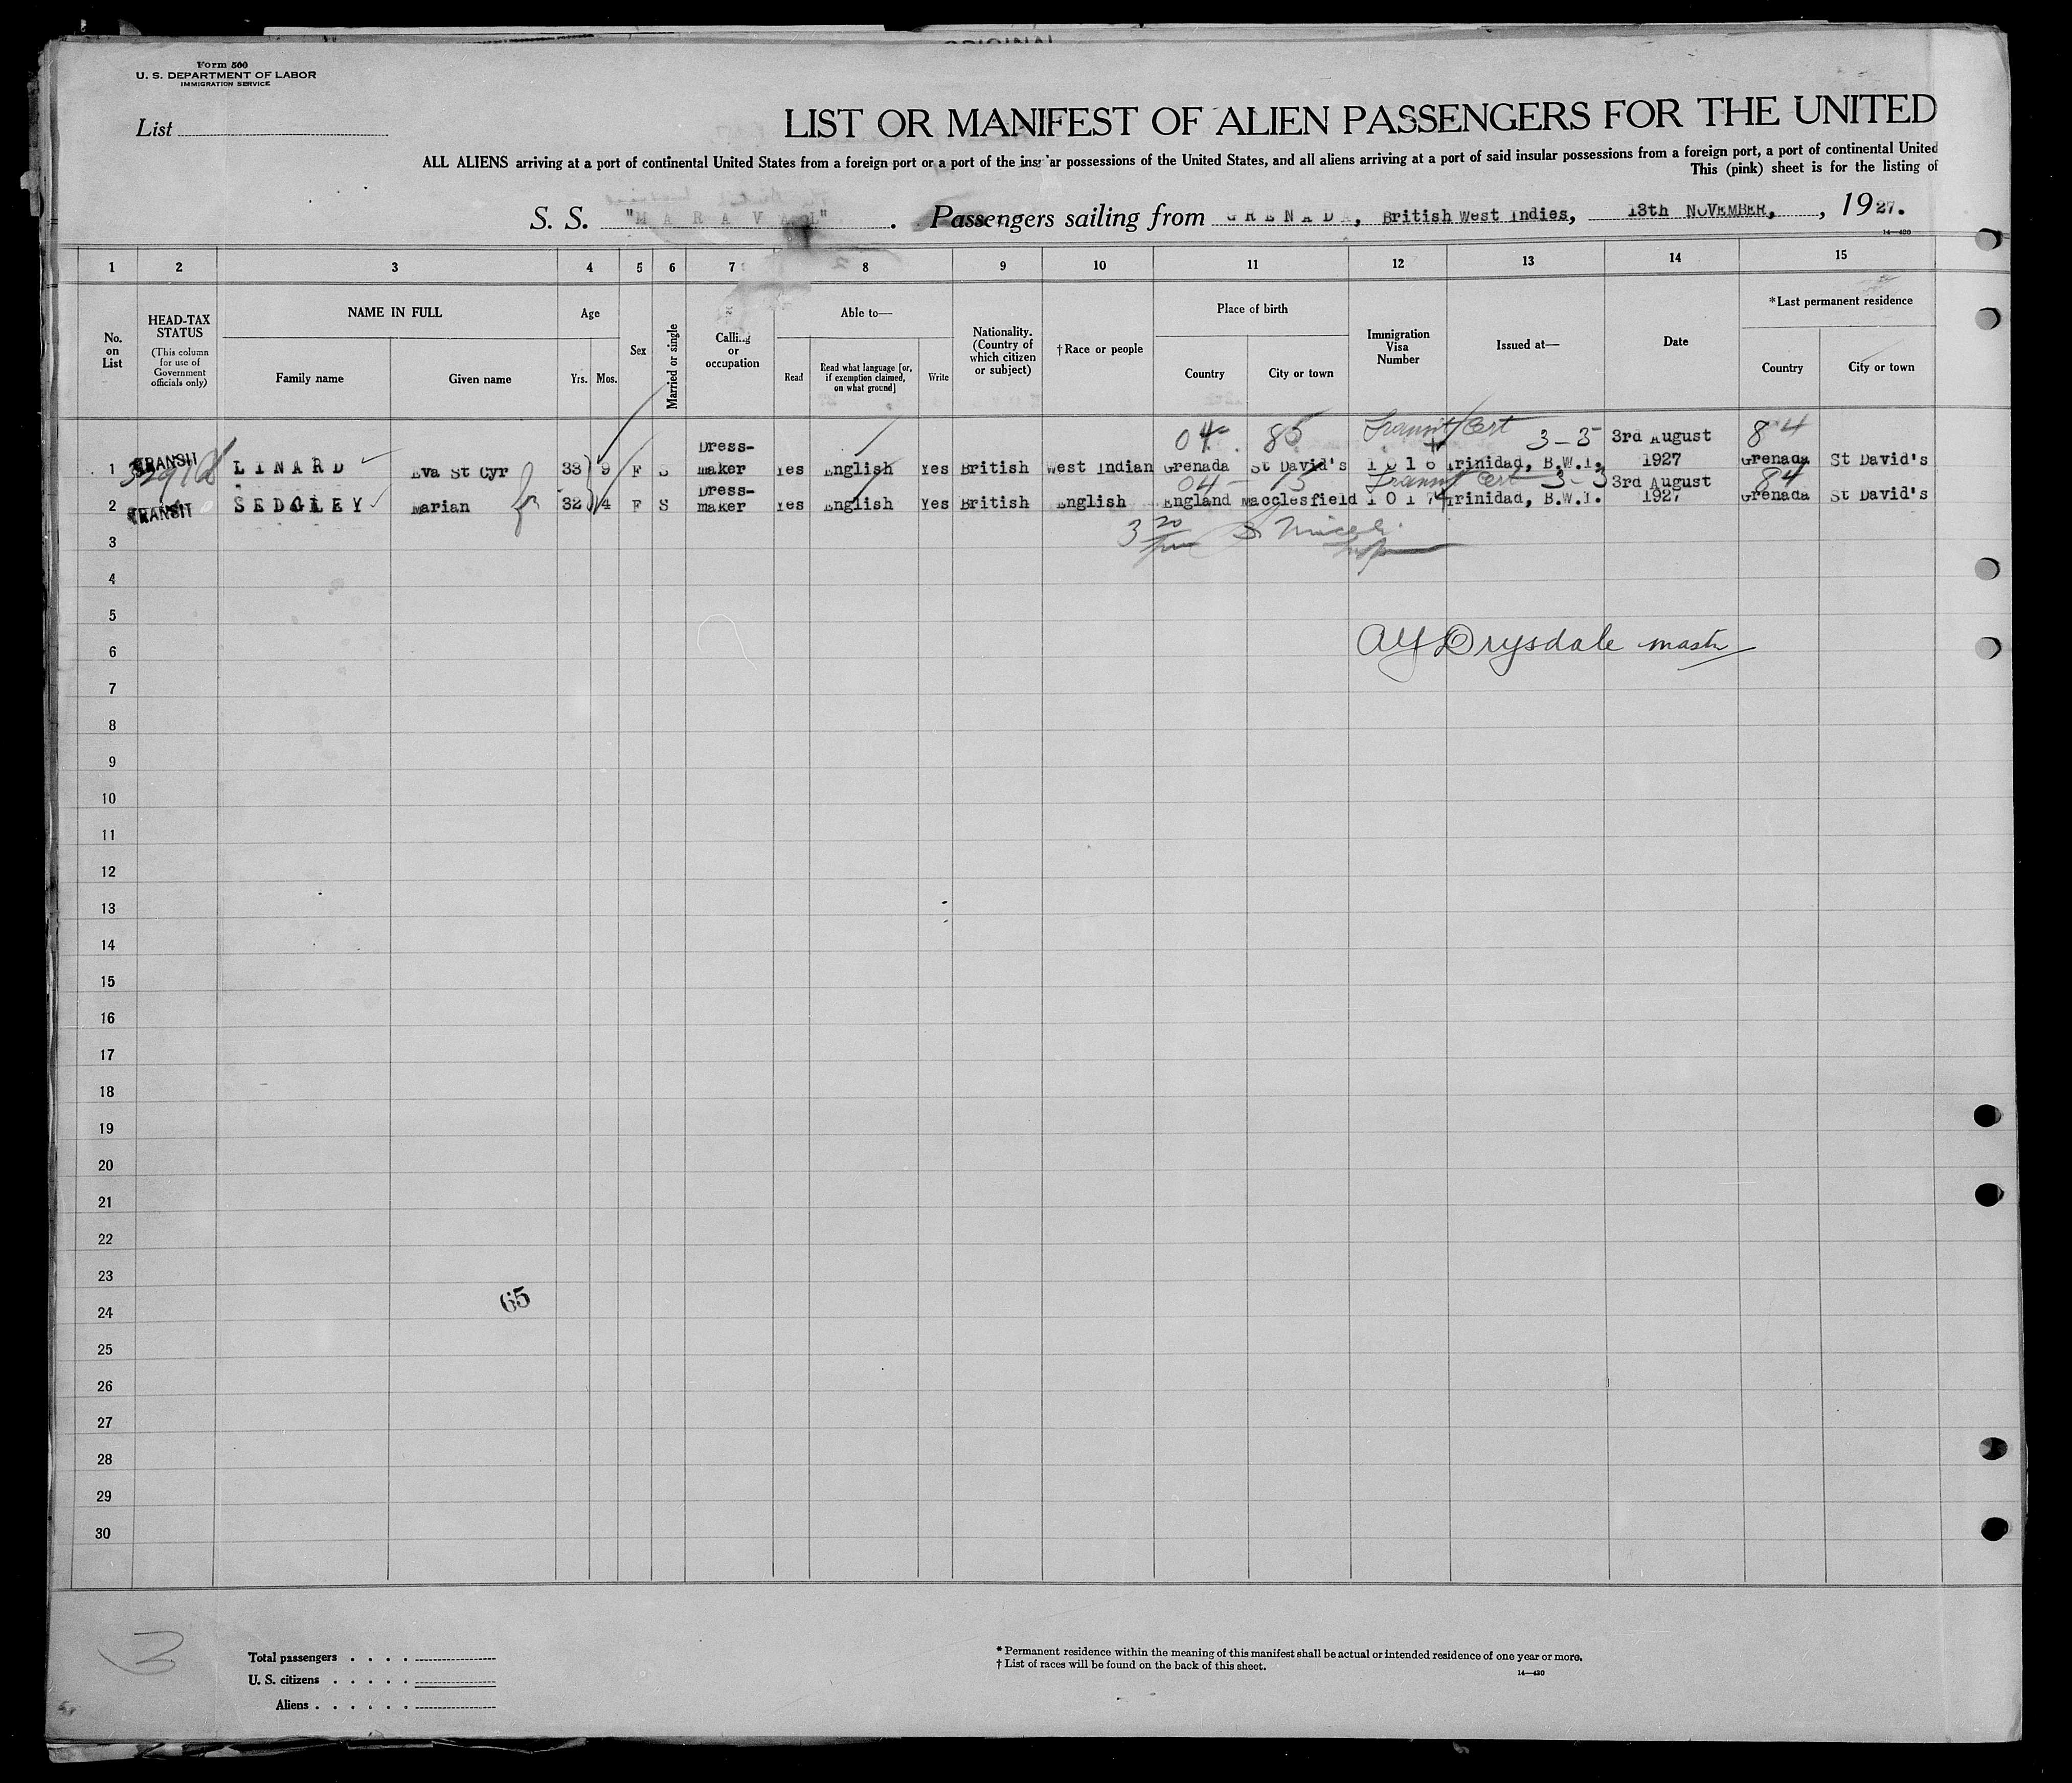 ORIGINAL
Form 500
U. S. DEPARTMENT OF LABOR
IMMIGRATION SERVICE
List
LIST OR MANIFEST OF ALIEN PASSENGERS FOR THE UNITED
ALL ALIENS arriving at a port of continental United States from a foreign port or a port of the insular possessions of the United States, and all aliens arriving at a port of said insular possessions from a foreign port, a port of continental United
This (pink) sheet is for the listing of
S. S. "MARAVAL". Passengers sailing from GRENADA, British West Indies, 13th NOVEMBER, , 1927.
14—420
1 2 3 4 5 6 7 8 9 10 11 12 13 14 15
No. on List
HEAD-TAX STATUS
(This column for use of Government officials only)
NAME IN FULL
Family name
Given name
Age
Yrs. Mos.
Sex
Married or single
Calling or occupation
Able to—
Read
Read what language [or, if exemption claimed, on what ground]
Write
Nationality. (Country of which citizen or subject)
†Race or people
Place of birth
Country
City or town
Immigration Visa Number
Issued at—
Date
*Last permanent residence
Country
City or town
04 85 Transit Cert 3-3 84
1 TRANSIT LINARD Eva St Cyr 33 9 F S Dress-maker Yes English Yes British West Indian Grenada St David's 1016 Trinidad, B.W.I. 3rd August 1927 Grenada St David's
04 - 13 Transit Cert 3-3 84
2 TRANSIT SEDGLEY Marian 32 4 F S Dress-maker Yes English Yes British English England Macclesfield 1017 Trinidad, B.W.I. 3rd August 1927 Grenada St David's
3
4
5
6 Drysdale master
7
8
9
10
11
12
13
14
15
16
17
18
19
20
21
22
23
65
24
25
26
27
28
29
30
3
Total passengers . . . .
U. S. citizens . . . . .
Aliens . . . . . .
* Permanent residence within the meaning of this manifest shall be actual or intended residence of one year or more.
† List of races will be found on the back of this sheet.
14—420